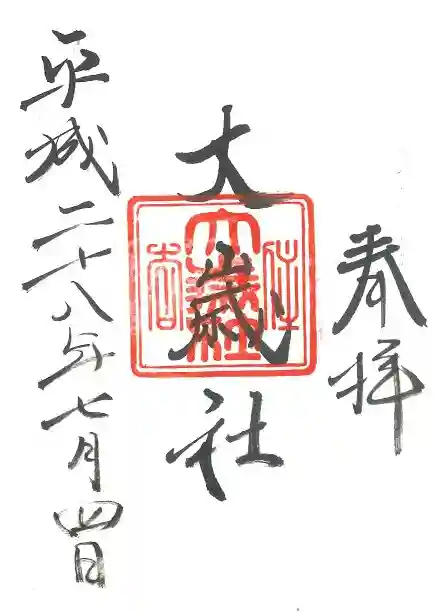 奉拝
大歳社
住
大歳社
吉
平成二十八年七月四日